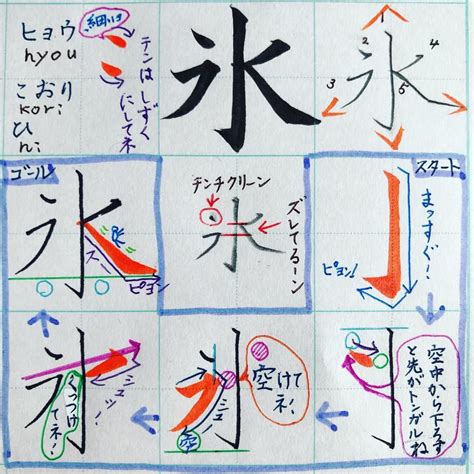 ヒョウ
hyou
こおり
kori
ひ
hi
細い
テンはしずく
にしてネ
氷
氷
1
2
3
4
5
スタート
まっすぐ!
ピョン!
空中から下ろす
と先がトンガルね
空けて
ネ!
シュ
空
くっつけ
てネ!
シュッ!
ゴール
氷
スー
ピョン
チンチクリーン
氷
ズレてるーン